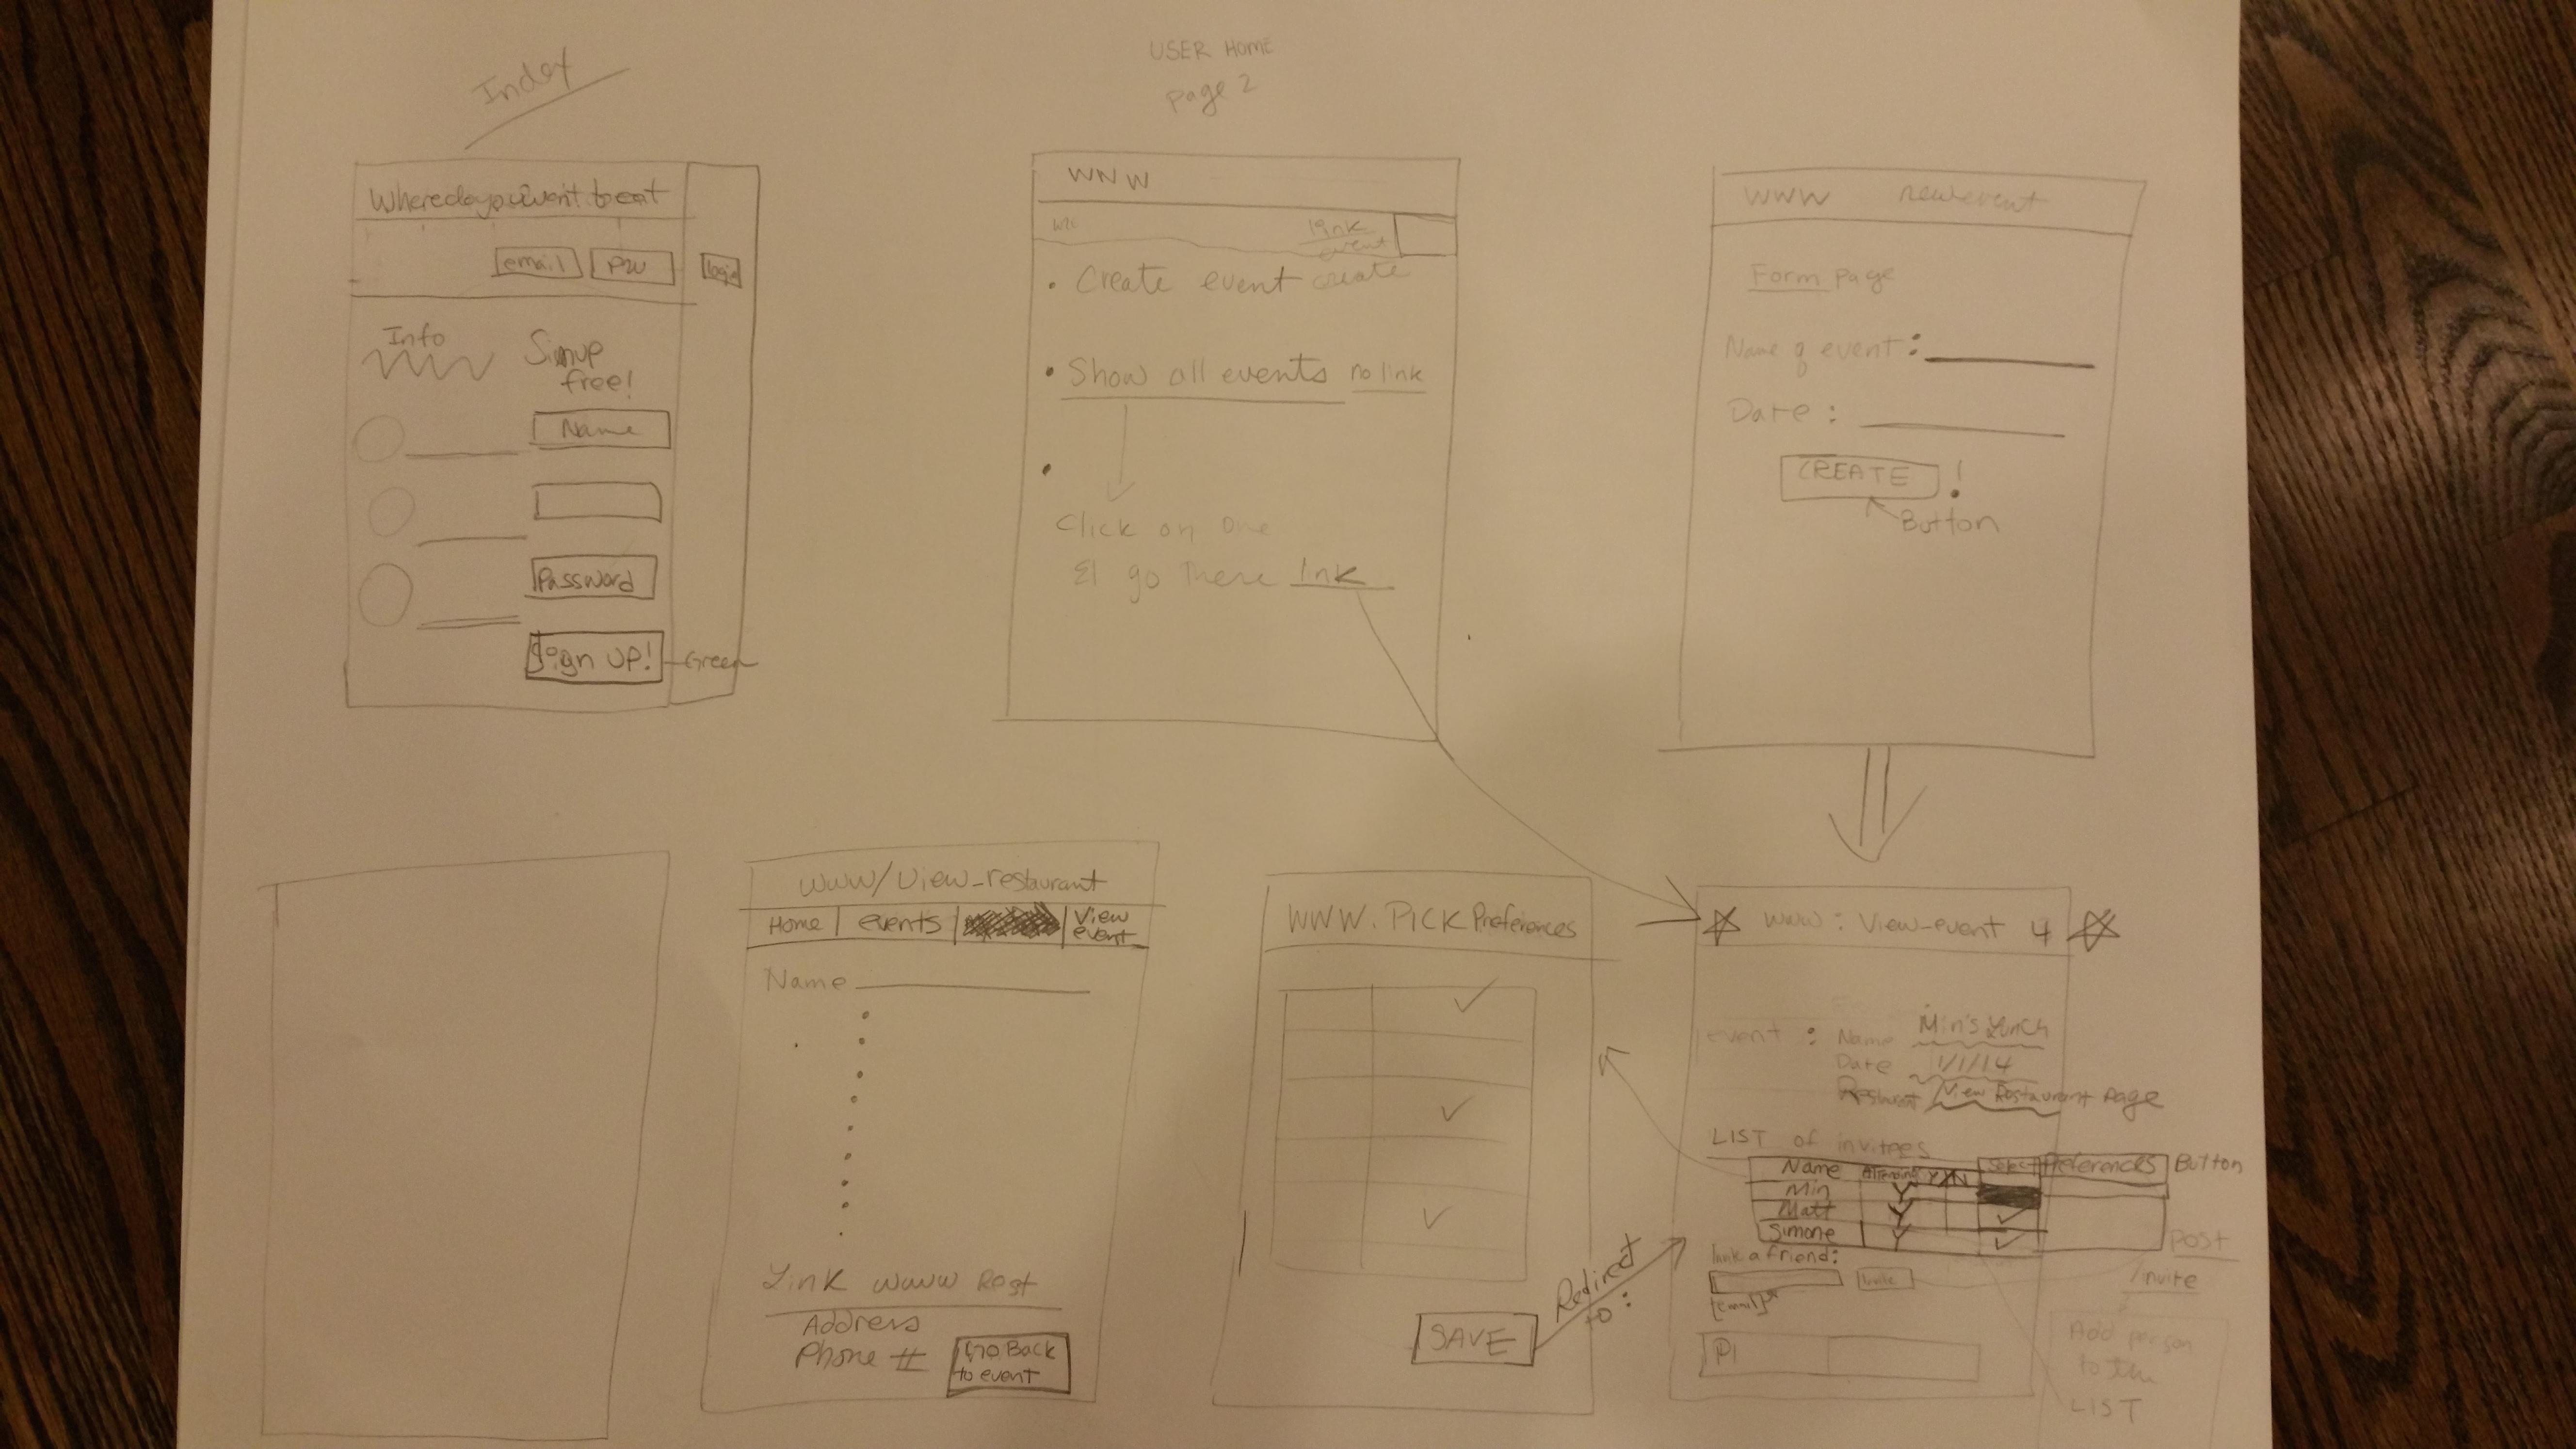 Index
Wheredoyouwant to eat
email PW login
Info
Sign up
free!
Name
Password
Sign UP! Green
USER HOME
page 2
WWW
link
event
Create event create
Show all events no link
Click on one
go there link
WWW newevent
Form page
Name of event:
Date:
CREATE !
Button
www/view_restaurant
Home events View
event
Name
Link www Rest
Address
Phone #
Go Back
to event
WWW.PICK Preferences
SAVE
Redirect
to:
www: View-event 4
event : Name Min's Lunch
Date 1/1/14
Restaurant View Restaurant Page
LIST of invitees
Name Attending Y/N Select Preferences Button
Min Y
Matt Y
Simone Y
Invite a friend:
Invite
[email]
P1
post
/invite
Add person
to the
LIST